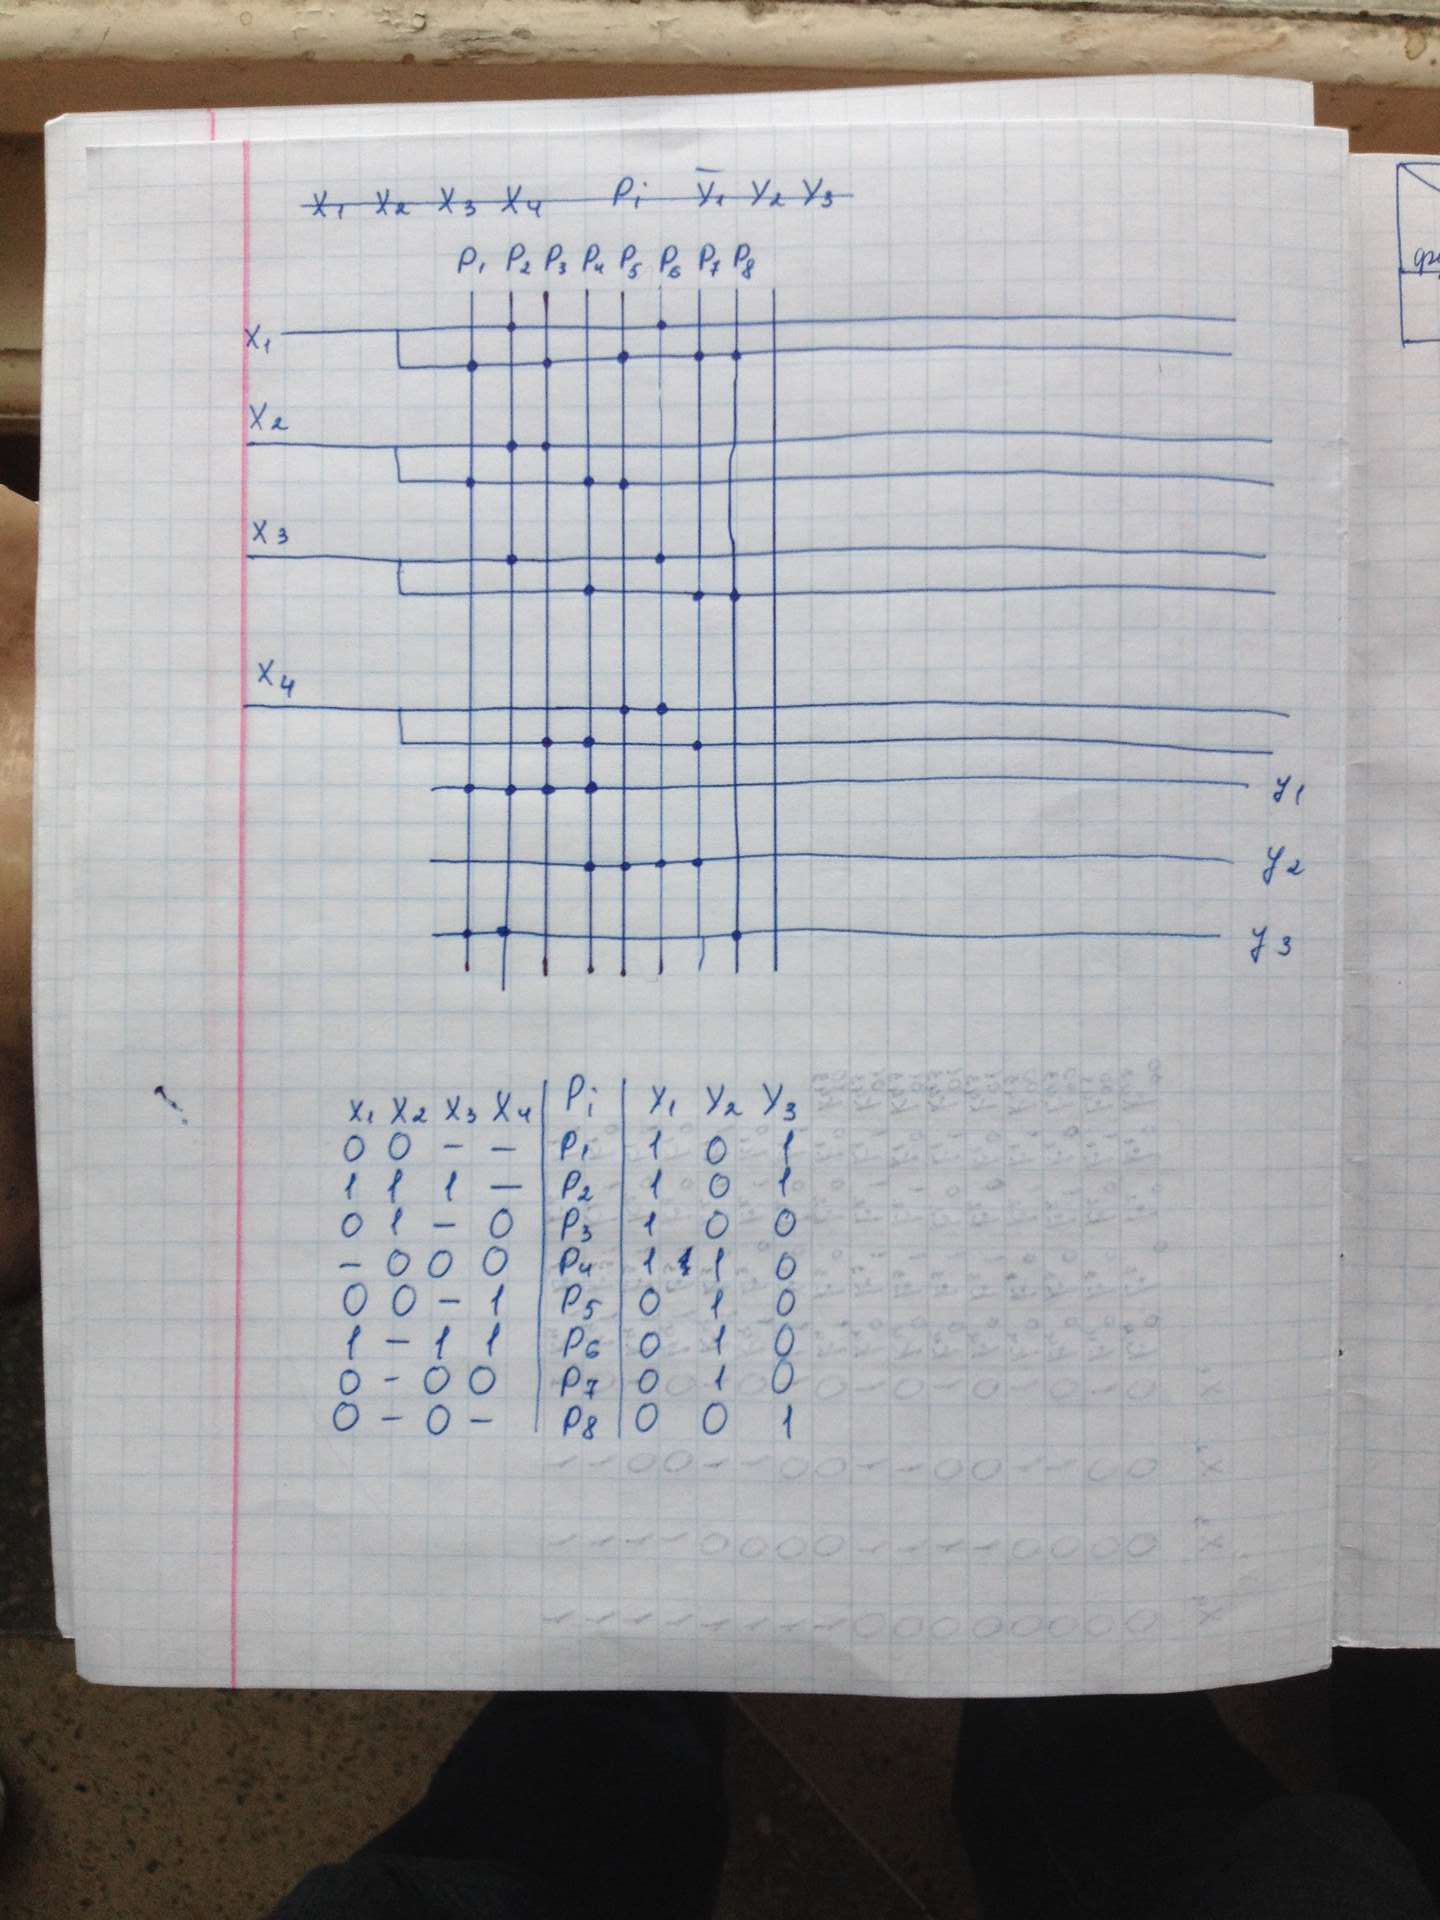 X1 X2 X3 X4 Pi Y̅1 Y2 Y3
P1 P2 P3 P4 P5 P6 P7 P8
X1
X2
X3
X4
y1
y2
y3
X1 X2 X3 X4 Pi Y1 Y2 Y3
0 0 – – P1 1 0 1
1 1 1 – P2 1 0 1
0 1 – 0 P3 1 0 0
– 0 0 0 P4 1 1 0
0 0 – 1 P5 0 1 0
1 – 1 1 P6 0 1 0
0 – 0 0 P7 0 1 0
0 – 0 – P8 0 0 1